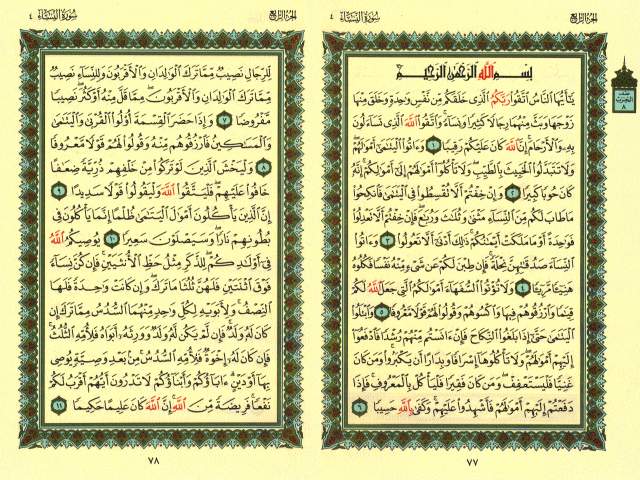 الجزء الرابع
سورة النساء ٤
بِسْمِ اللَّهِ الرَّحْمَٰنِ الرَّحِيمِ
يَٰٓأَيُّهَا النَّاسُ اتَّقُوا رَبَّكُمُ الَّذِى خَلَقَكُم مِّن نَّفْسٍ وَٰحِدَةٍ وَخَلَقَ مِنْهَا
زَوْجَهَا وَبَثَّ مِنْهُمَا رِجَالًا كَثِيرًا وَنِسَآءً وَاتَّقُوا اللَّهَ الَّذِى تَسَآءَلُونَ
بِهِ وَالْأَرْحَامَ إِنَّ اللَّهَ كَانَ عَلَيْكُمْ رَقِيبًا ١ وَءَاتُوا الْيَتَٰمَىٰٓ أَمْوَٰلَهُمْ
وَلَا تَتَبَدَّلُوا الْخَبِيثَ بِالطَّيِّبِ وَلَا تَأْكُلُوٓا أَمْوَٰلَهُمْ إِلَىٰٓ أَمْوَٰلِكُمْ إِنَّهُ
كَانَ حُوبًا كَبِيرًا ٢ وَإِنْ خِفْتُمْ أَلَّا تُقْسِطُوا فِى الْيَتَٰمَىٰ فَانكِحُوا
مَا طَابَ لَكُم مِّنَ النِّسَآءِ مَثْنَىٰ وَثُلَٰثَ وَرُبَٰعَ فَإِنْ خِفْتُمْ أَلَّا تَعْدِلُوا
فَوَٰحِدَةً أَوْ مَا مَلَكَتْ أَيْمَٰنُكُمْ ذَٰلِكَ أَدْنَىٰٓ أَلَّا تَعُولُوا ٣ وَءَاتُوا
النِّسَآءَ صَدُقَٰتِهِنَّ نِحْلَةً فَإِن طِبْنَ لَكُمْ عَن شَىْءٍ مِّنْهُ نَفْسًا فَكُلُوهُ
هَنِيٓئًا مَّرِيٓئًا ٤ وَلَا تُؤْتُوا السُّفَهَآءَ أَمْوَٰلَكُمُ الَّتِى جَعَلَ اللَّهُ لَكُمْ
قِيَٰمًا وَارْزُقُوهُمْ فِيهَا وَاكْسُوهُمْ وَقُولُوا لَهُمْ قَوْلًا مَّعْرُوفًا ٥ وَابْتَلُوا
الْيَتَٰمَىٰ حَتَّىٰٓ إِذَا بَلَغُوا النِّكَاحَ فَإِنْ ءَانَسْتُم مِّنْهُمْ رُشْدًا فَادْفَعُوٓا
إِلَيْهِمْ أَمْوَٰلَهُمْ وَلَا تَأْكُلُوهَآ إِسْرَافًا وَبِدَارًا أَن يَكْبَرُوا وَمَن كَانَ
غَنِيًّا فَلْيَسْتَعْفِفْ وَمَن كَانَ فَقِيرًا فَلْيَأْكُلْ بِالْمَعْرُوفِ فَإِذَا
دَفَعْتُمْ إِلَيْهِمْ أَمْوَٰلَهُمْ فَأَشْهِدُوا عَلَيْهِمْ وَكَفَىٰ بِاللَّهِ حَسِيبًا ٦
٧٧
الحزب
٨
الجزء الرابع
سورة النساء ٤
لِّلرِّجَالِ نَصِيبٌ مِّمَّا تَرَكَ الْوَٰلِدَانِ وَالْأَقْرَبُونَ وَلِلنِّسَآءِ نَصِيبٌ
مِّمَّا تَرَكَ الْوَٰلِدَانِ وَالْأَقْرَبُونَ مِمَّا قَلَّ مِنْهُ أَوْ كَثُرَ نَصِيبًا
مَّفْرُوضًا ٧ وَإِذَا حَضَرَ الْقِسْمَةَ أُولُوا الْقُرْبَىٰ وَالْيَتَٰمَىٰ
وَالْمَسَٰكِينُ فَارْزُقُوهُم مِّنْهُ وَقُولُوا لَهُمْ قَوْلًا مَّعْرُوفًا
٨ وَلْيَخْشَ الَّذِينَ لَوْ تَرَكُوا مِنْ خَلْفِهِمْ ذُرِّيَّةً ضِعَٰفًا
خَافُوا عَلَيْهِمْ فَلْيَتَّقُوا اللَّهَ وَلْيَقُولُوا قَوْلًا سَدِيدًا ٩
إِنَّ الَّذِينَ يَأْكُلُونَ أَمْوَٰلَ الْيَتَٰمَىٰ ظُلْمًا إِنَّمَا يَأْكُلُونَ فِى
بُطُونِهِمْ نَارًا وَسَيَصْلَوْنَ سَعِيرًا ١٠ يُوصِيكُمُ اللَّهُ
فِىٓ أَوْلَٰدِكُمْ لِلذَّكَرِ مِثْلُ حَظِّ الْأُنثَيَيْنِ فَإِن كُنَّ نِسَآءً
فَوْقَ اثْنَتَيْنِ فَلَهُنَّ ثُلُثَا مَا تَرَكَ وَإِن كَانَتْ وَٰحِدَةً فَلَهَا
النِّصْفُ وَلِأَبَوَيْهِ لِكُلِّ وَٰحِدٍ مِّنْهُمَا السُّدُسُ مِمَّا تَرَكَ إِن
كَانَ لَهُ وَلَدٌ فَإِن لَّمْ يَكُن لَّهُ وَلَدٌ وَوَرِثَهُ أَبَوَاهُ فَلِأُمِّهِ الثُّلُثُ
فَإِن كَانَ لَهُ إِخْوَةٌ فَلِأُمِّهِ السُّدُسُ مِن بَعْدِ وَصِيَّةٍ يُوصِى
بِهَآ أَوْ دَيْنٍ ءَابَآؤُكُمْ وَأَبْنَآؤُكُمْ لَا تَدْرُونَ أَيُّهُمْ أَقْرَبُ لَكُمْ
نَفْعًا فَرِيضَةً مِّنَ اللَّهِ إِنَّ اللَّهَ كَانَ عَلِيمًا حَكِيمًا ١١
٧٨